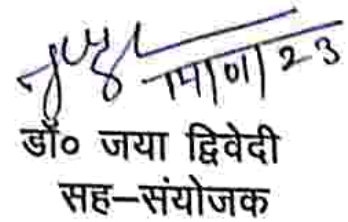 14/01/23
डॉ० जया द्विवेदी
सह–संयोजक